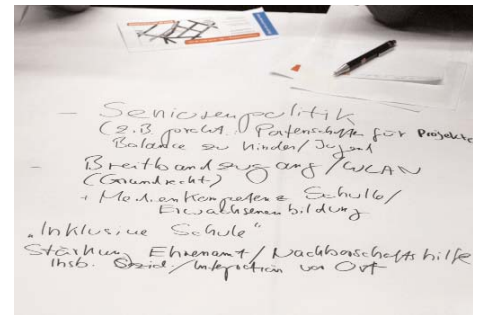 - Seniorenpolitik
(z.B prakt. Patenschaften für Projekte
Balance zu Kinder/Jugend
- Breitbandzugang/WLAN
(Grundrecht)
+ Medienkompetenz Schule/
Erwachsenenbildung
„Inklusive Schule“
Stärkung Ehrenamt/Nachbarschaftshilfe
Insb. Sozial-/Integration vor Ort